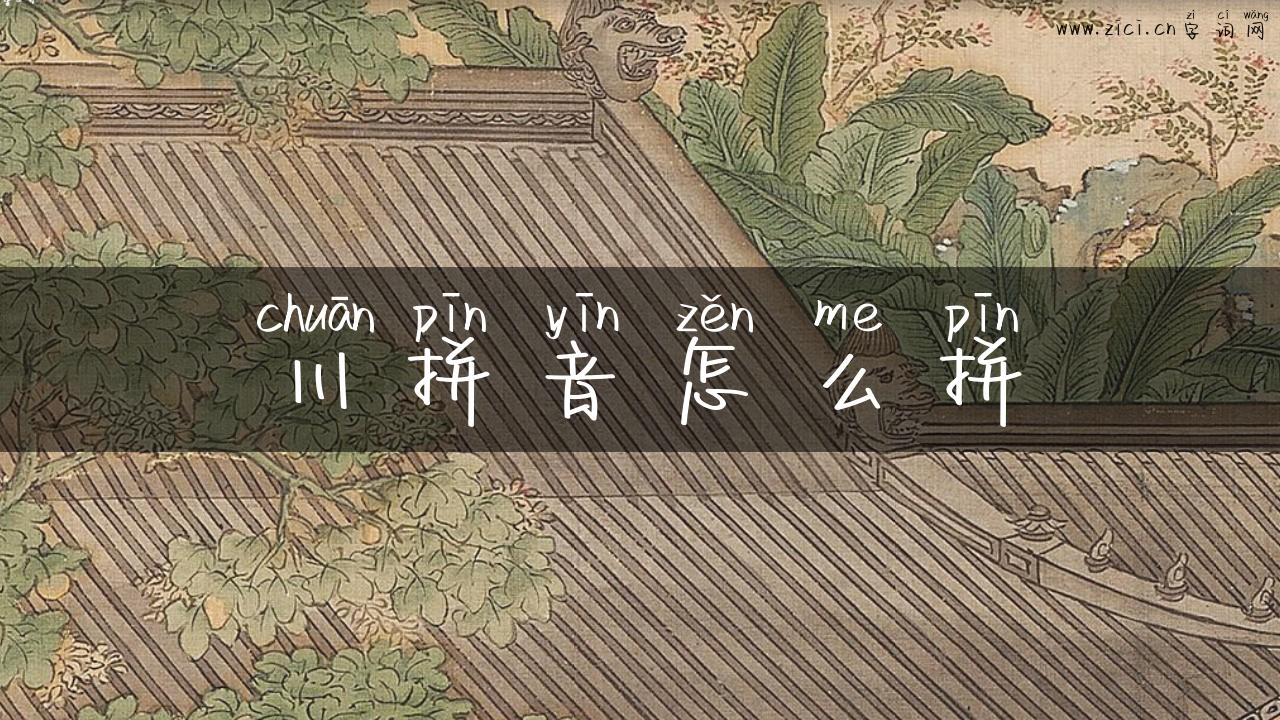 zì cí wǎng
www.zici.cn 字词网
chuān pīn yīn zěn me pīn
川拼音怎么拼